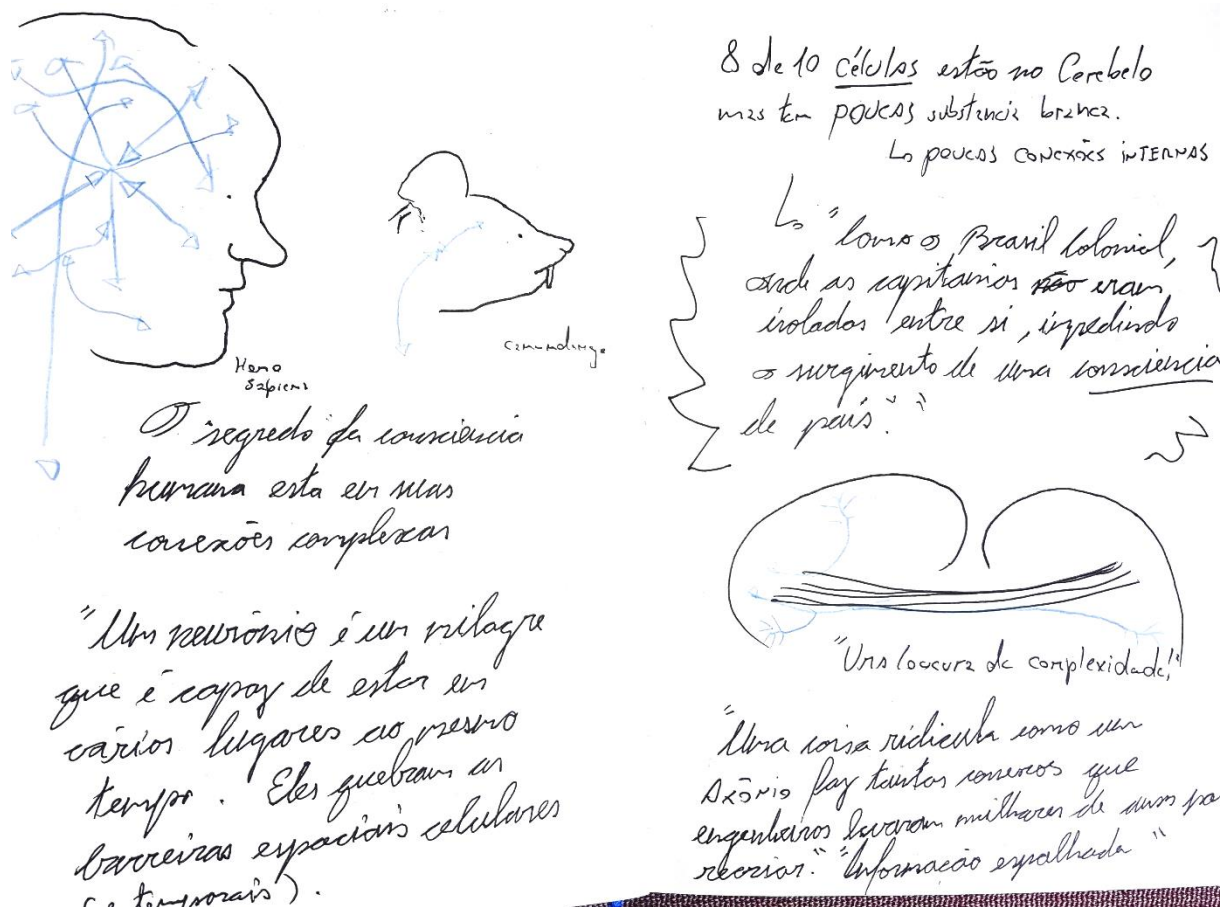 Homo
Sapiens
Camundongo
O segredo da consciencia
humana esta em suas
conexões complexas
"Um neurônio é um milagre
que é capaz de estar em
vários lugares ao mesmo
tempo. Eles quebram as
barreiras espaciais celulares
(e temporais).
8 de 10 células estão no Cerebelo
mas tem POUCAS substancia branca.
↳ POUCAS CONEXÕES INTERNAS
↳ "Como o Brasil Colonial,
onde as capitanias não eram
isoladas entre si, impedindo
o surgimento de uma consciencia
de país".
"Uma loucura de complexidade!"
"Uma coisa ridicula como um
Axônio faz tantas conexoes que
engenheiros levaram milhares de anos pa
recriar." "Informação espalhada"